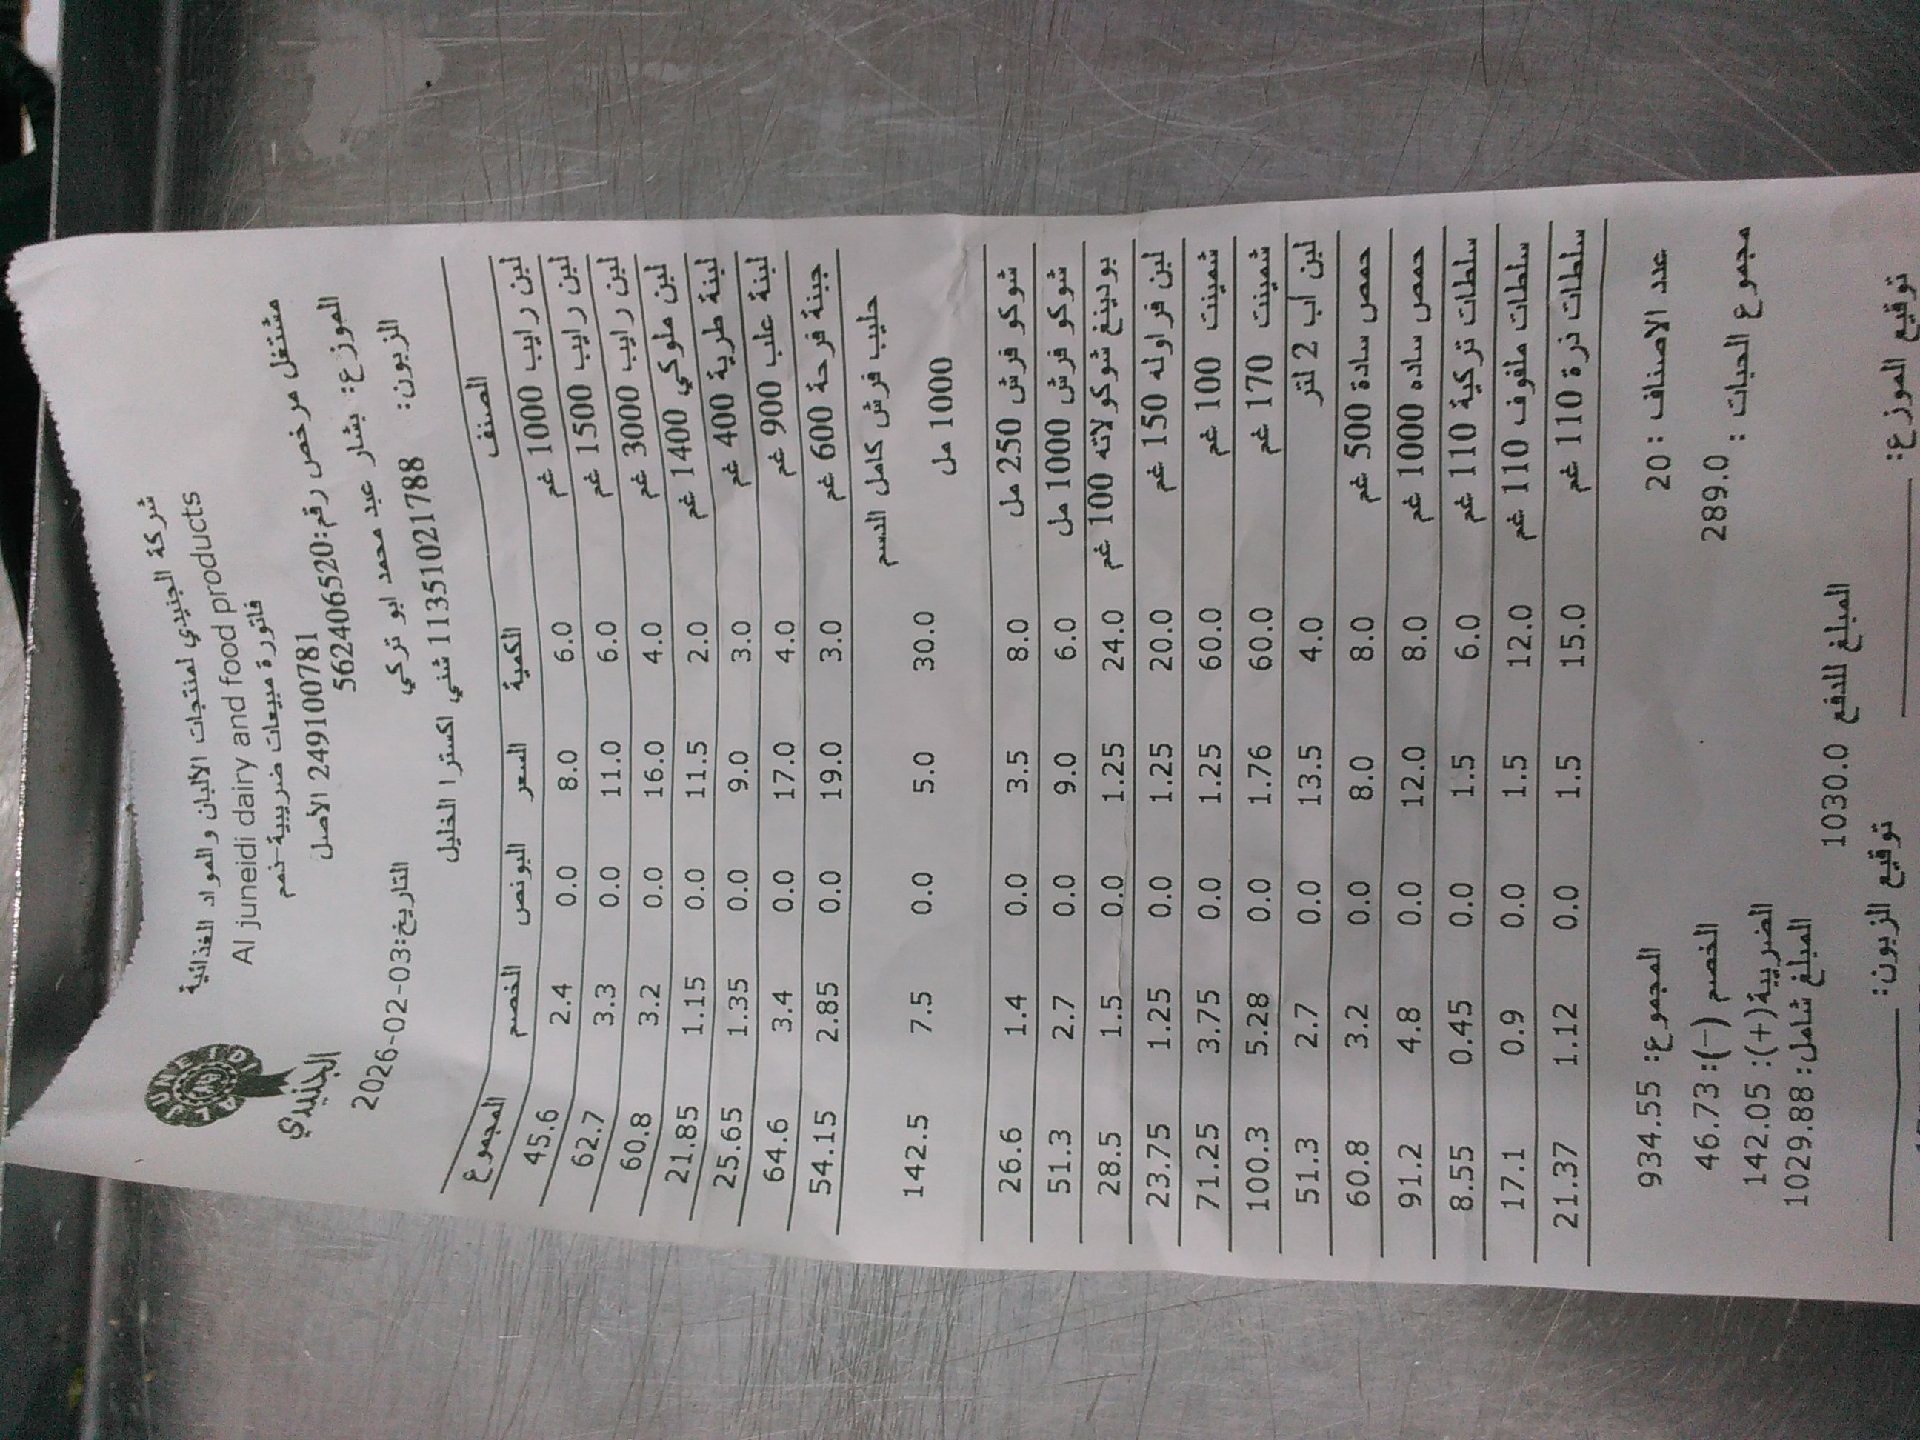 شركة الجنيدي لمنتجات الالبان والمواد الغذائية
Al juneidi dairy and food products
فاتورة مبيعات ضريبية-نمم
AL JUNEIDI
الجنيدي
مشتغل مرخص رقم:562406520
249100781 الاصل
الموزع: بشار عبد محمد ابو تركي
التاريخ:2026-02-03
الزبون: 11351021788 شني اكسترا الخليل
الصنف الكمية السعر البونص الخصم المجموع
لبن رايب 1000 غم 6.0 8.0 0.0 2.4 45.6
لبن رايب 1500 غم 6.0 11.0 0.0 3.3 62.7
لبن رايب 3000 غم 4.0 16.0 0.0 3.2 60.8
لبن ملوكي 1400 غم 2.0 11.5 0.0 1.15 21.85
لبنة طرية 400 غم 3.0 9.0 0.0 1.35 25.65
لبنة علب 900 غم 4.0 17.0 0.0 3.4 64.6
جبنة فرحة 600 غم 3.0 19.0 0.0 2.85 54.15
حليب فرش كامل الدسم
1000 مل 30.0 5.0 0.0 7.5 142.5
شوكو فرش 250 مل 8.0 3.5 0.0 1.4 26.6
شوكو فرش 1000 مل 6.0 9.0 0.0 2.7 51.3
بودينغ شوكولاته 100 غم 24.0 1.25 0.0 1.5 28.5
لبن فراوله 150 غم 20.0 1.25 0.0 1.25 23.75
شمينت 100 غم 60.0 1.25 0.0 3.75 71.25
شمينت 170 غم 60.0 1.76 0.0 5.28 100.3
لبن اب 2 لتر 4.0 13.5 0.0 2.7 51.3
حمص سادة 500 غم 8.0 8.0 0.0 3.2 60.8
حمص ساده 1000 غم 8.0 12.0 0.0 4.8 91.2
سلطات تركية 110 غم 6.0 1.5 0.0 0.45 8.55
سلطات ملفوف 110 غم 12.0 1.5 0.0 0.9 17.1
سلطات ذرة 110 غم 15.0 1.5 0.0 1.12 21.37
عدد الاصناف : 20 المجموع: 934.55
مجموع الحبات : 289.0 الخصم (-): 46.73
الضريبة(+): 142.05
المبلغ شامل: 1029.88
المبلغ للدفع 1030.0
توقيع الموزع: توقيع الزبون: